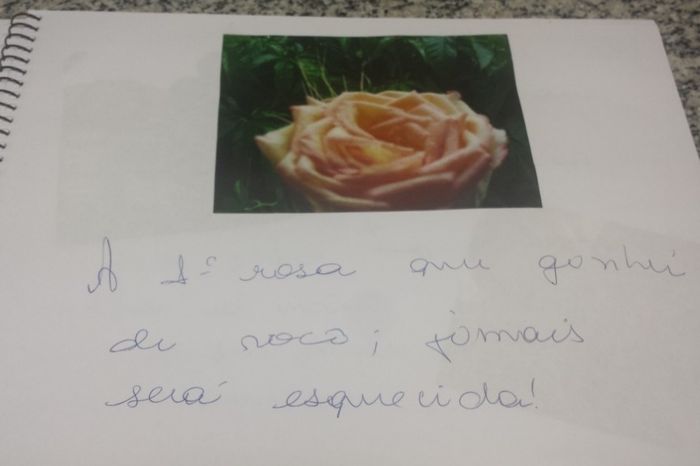 A 1ª rosa que ganhei
de você; jamais
será esquecida!